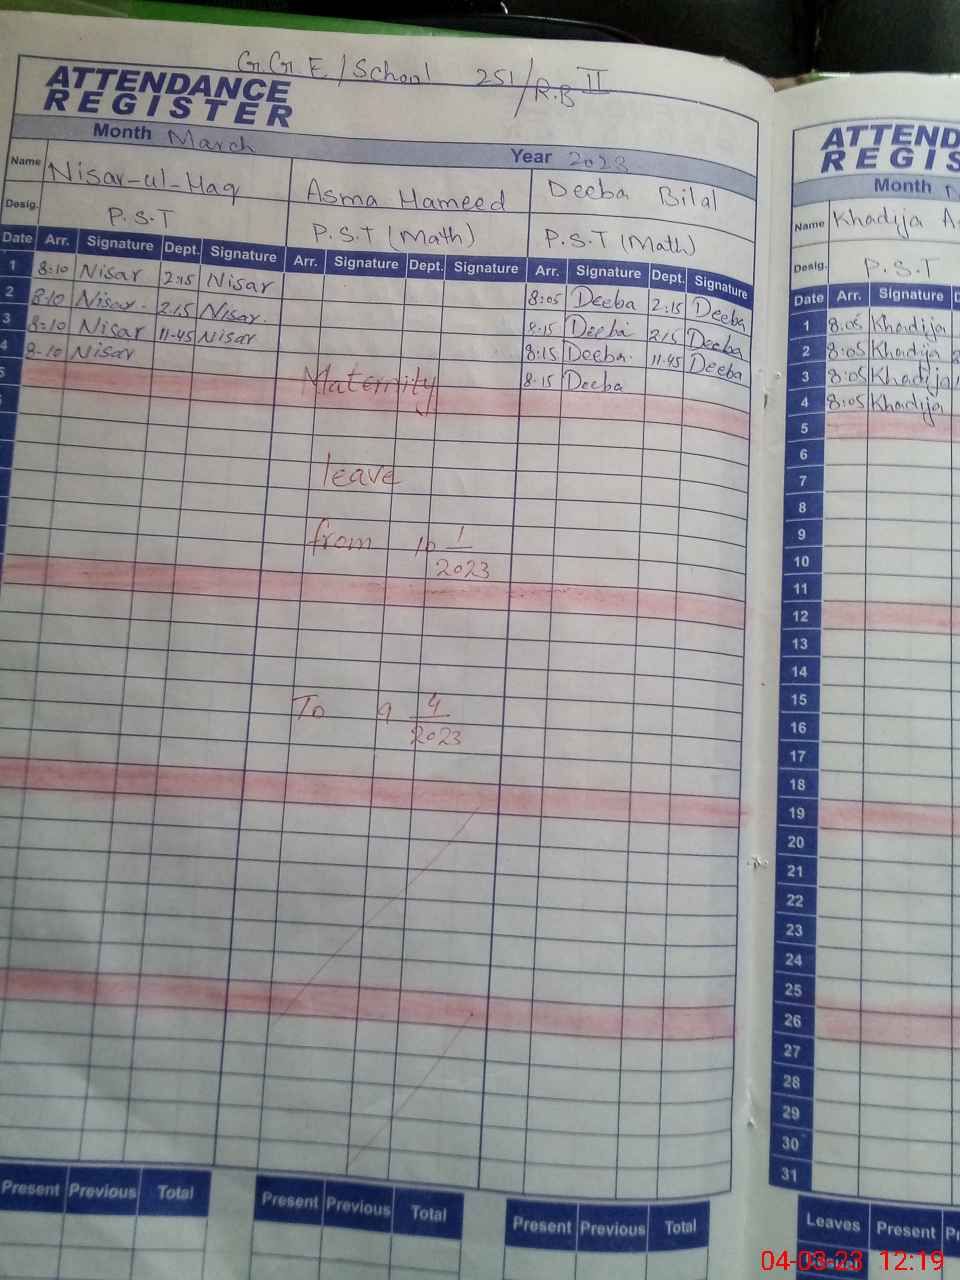 G.G.E/School 251/R.B II
ATTENDANCE
REGISTER
Month March Year 2023
Name Nisar-ul-Haq Asma Hameed Deeba Bilal
Desig. P.S.T P.S.T (Math) P.S.T (Math)
Date Arr. Signature Dept. Signature Arr. Signature Dept. Signature Arr. Signature Dept. Signature
1 8:10 Nisar 2:15 Nisar 8:05 Deeba 2:15 Deeba
2 8:10 Nisar. 2:15 Nisar. 8:15 Deeba 2:15 Deeba
3 8:10 Nisar 11-45 Nisar 8:15 Deeba. 11-45 Deeba
4 8-10 Nisar 8-15 Deeba
5
Maternity
leave
from 16 1/2023
To 9 4/2023
Present Previous Total Present Previous Total Present Previous Total
ATTEND
REGIS
Month
Name Khadija
Desig. P.S.T
Date Arr. Signature
1 8:05 Khadija
2 8:05 Khadija
3 8:05 Khadija
4 8:05 Khadija
5
6
7
8
9
10
11
12
13
14
15
16
17
18
19
20
21
22
23
24
25
26
27
28
29
30
31
Leaves Present
04-03-23 12:19